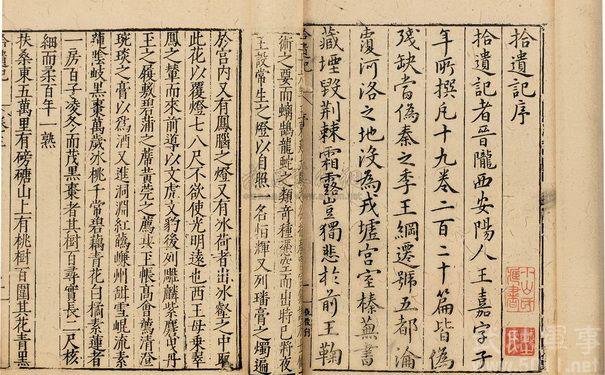 拾遺記序
拾遺記者晉隴西安陽人王嘉字子
年所撰凡十九卷二百二十篇皆為
殘缺當偽秦之季王綱遷號五都淪
覆河洛之地沒為戎墟宮室榛蕪書
藏堙毀荊棘霜露豈獨悲於前王鞠
拾遺記
術之要而螭鵠龍蛇之類奇種憑空而出時已將夜
王設常生之燈以自照一名恒輝又列璠膏之燭遍
於宮內又有鳳腦之燈又有冰荷者出冰壑之中取
此花以覆燈七八尺不欲使光明遠也西王母乘翠
鳳之輦而來前導以文虎文豹後列雕麟紫麏曳丹
玉之履敷碧蒲之蓆黃莞之薦共玉帳高會薦清澄
琬琰之膏以為酒又進洞淵紅蘤嵰州甜雪崐流素
蓮陰岐黑棗萬歲冰桃千常碧藕青花白橘素蓮者
一房百子凌冬而茂黑棗者其樹百尋實長二尺核
細而柔百年一熟
扶桑東五萬里有磅磄山上有桃樹百圍其花青黑